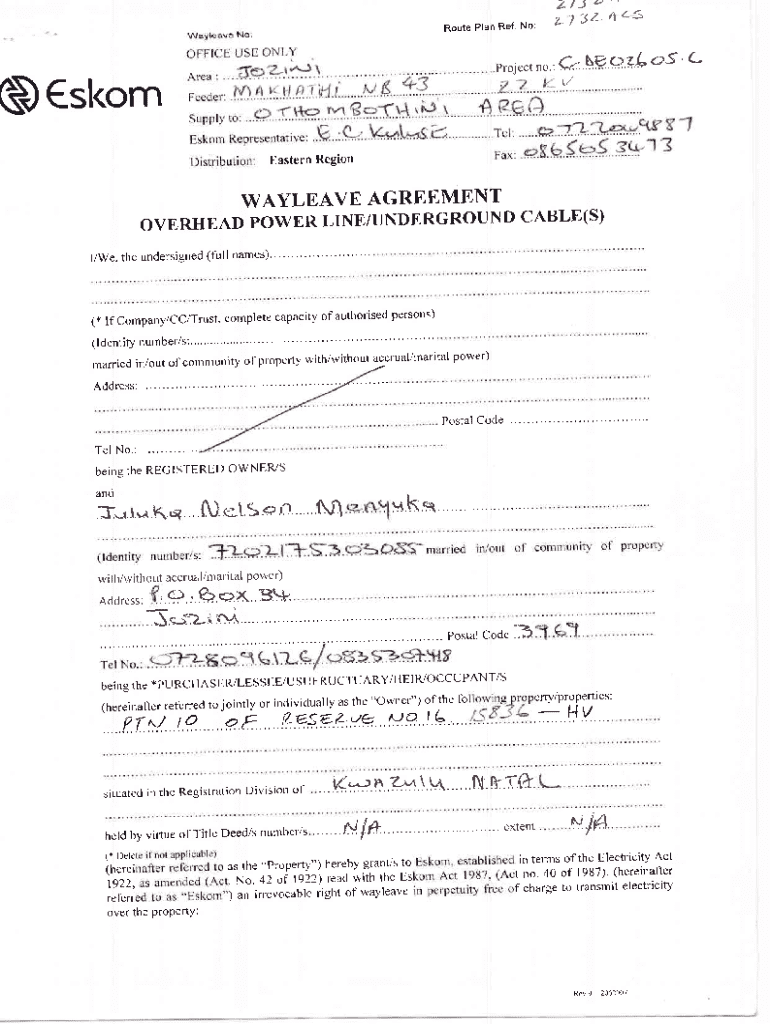 Wayleave No:
Route Plan Ref. No: 2732.ACS
OFFICE USE ONLY
Area : JOZINI Project no.: C.DE02605.C
Eskom
Feeder: MAKHATHI NB 43 22 KV
Supply to: OTHOMBOTHINI AREA
Eskom Representative: E.C Tel:
Distribution: Eastern Region Fax: 0865653473
WAYLEAVE AGREEMENT
OVERHEAD POWER LINE/UNDERGROUND CABLE(S)
I/We, the undersigned (full names)
(* If Company/CC/Trust, complete capacity of authorised persons)
(Identity number/s:
married in/out of community of property with/without accrual/marital power)
Address:
Postal Code
Tel No.:
being the REGISTERED OWNER/S
and
Juluka Nelson Manyuka
(Identity number/s: 7202175303055 married in/out of community of property
with/without accrual/marital power)
Address: P.O. Box 34
Jozini
Postal Code 3969
Tel No.: 0728096126/
being the *PURCHASER/LESSEE/USUFRUCTUARY/HEIR/OCCUPANT/S
(hereinafter referred to jointly or individually as the "Owner") of the following property/properties:
PTN 10 OF RESERVE NO.16 15836 — HV
situated in the Registration Division of KWAZULU NATAL
held by virtue of Title Deed/s number/s N/A extent N/A
(* Delete if not applicable)
(hereinafter referred to as the "Property") hereby grant/s to Eskom, established in terms of the Electricity Act
1922, as amended (Act. No. 42 of 1922) read with the Eskom Act 1987, (Act no. 40 of 1987). (hereinafter
referred to as "Eskom") an irrevocable right of wayleave in perpetuity free of charge to transmit electricity
over the property: